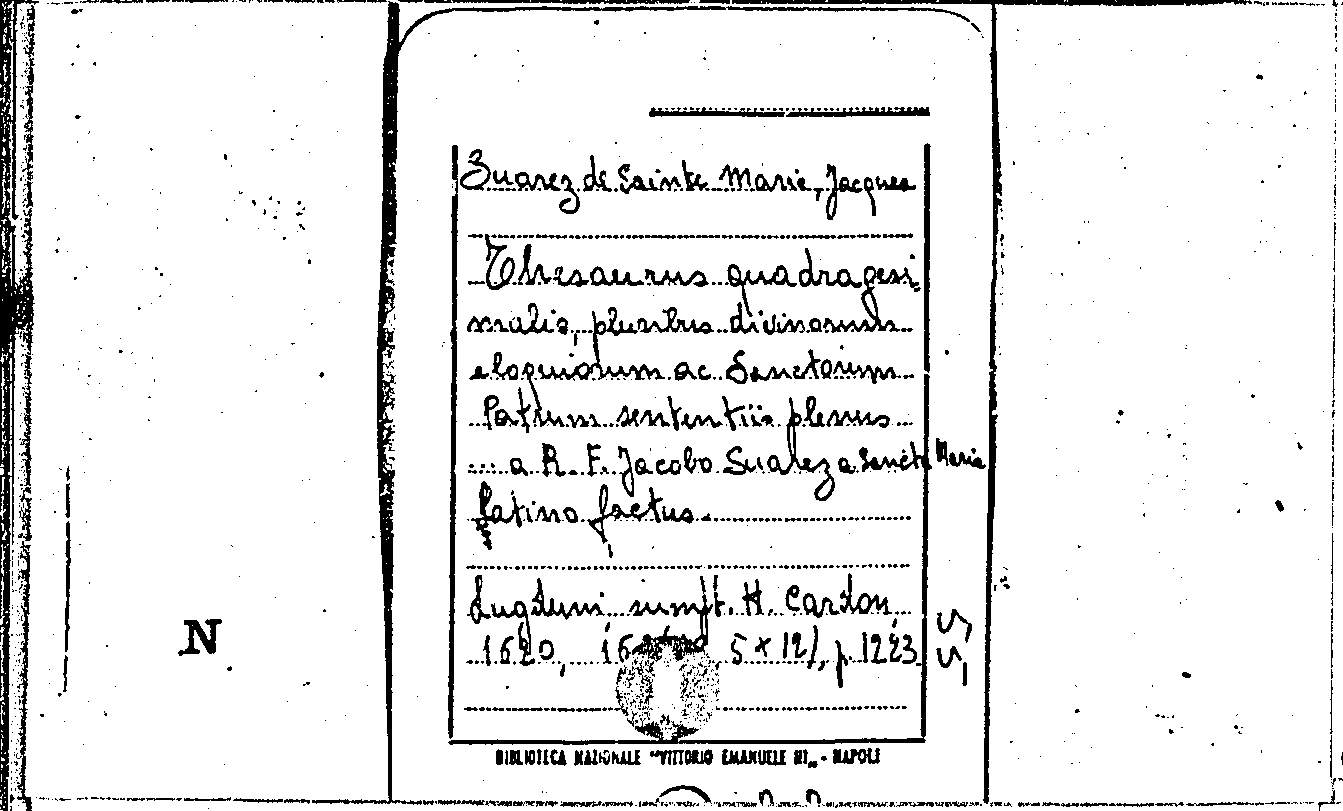 Suarez de Sainte Marie, Jacques
Thesaurus quadragesi-
malis, pluribus divinorum
eloquiorum ac Sanctorum
Patrum sententiis plenus
... a R. F. Jacobo Suarez a Sancta Maria
latino factus.
Lugduni sumpt. H. Cardon,
1620, 5 × 12/, p. 1223
N
BIBLIOTECA NAZIONALE "VITTORIO EMANUELE III„ - NAPOLI